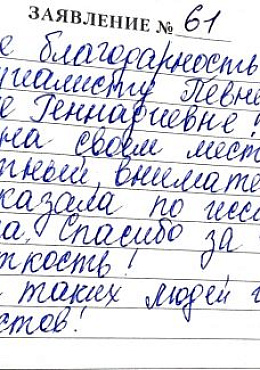 ЗАЯВЛЕНИЕ № 61
е благодарность
циалисту Певне
не Геннадиевне!
на своем мест
тный внимате
казала по иссл
на, Спасибо за
ткость!
таких людей
стов!